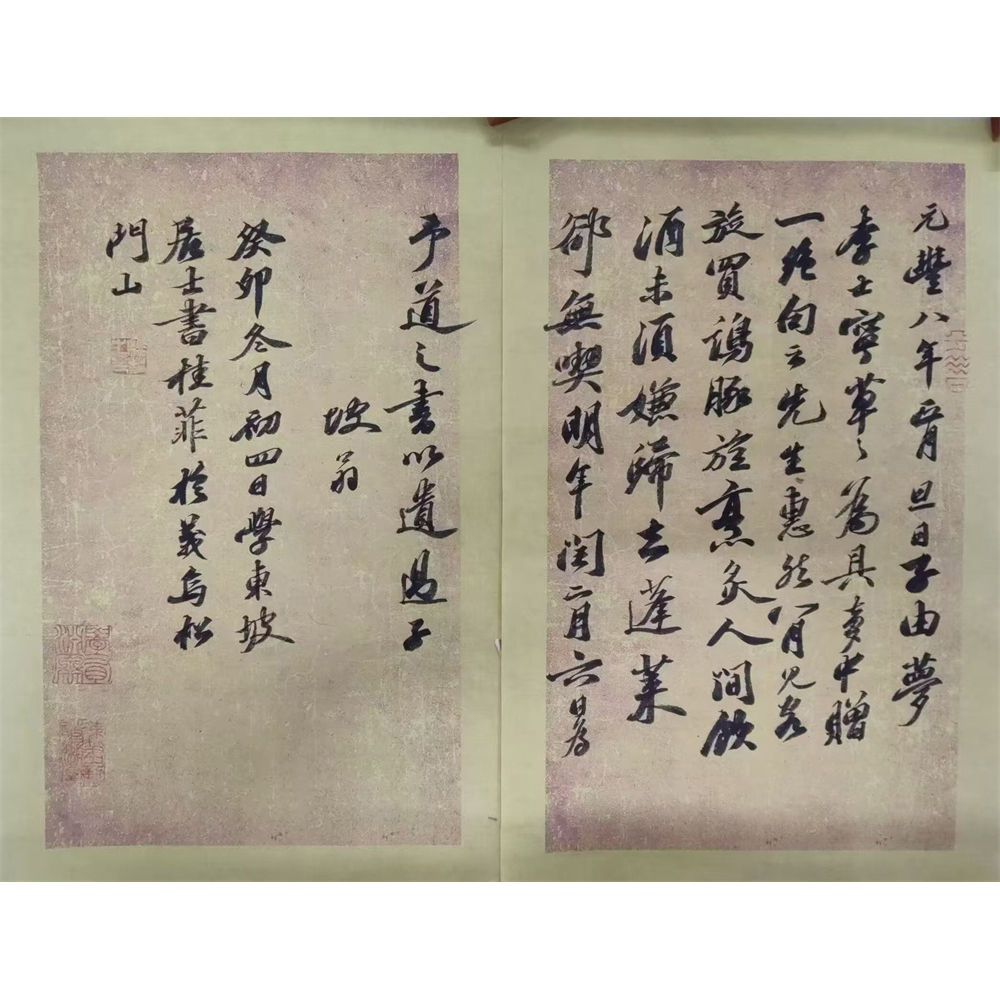 元豐八年正月旦日子由夢
李士寧草〻為具夢中贈
一絕句云先生惠然肯見客
旋買鷄豚旋烹炙人間飲
酒未須嫌歸去蓬萊
郤無喫明年閏二月六日為
予道之書以遺過子
坡翁
癸卯冬月初四日學東坡
居士書桂菲於義烏松
門山